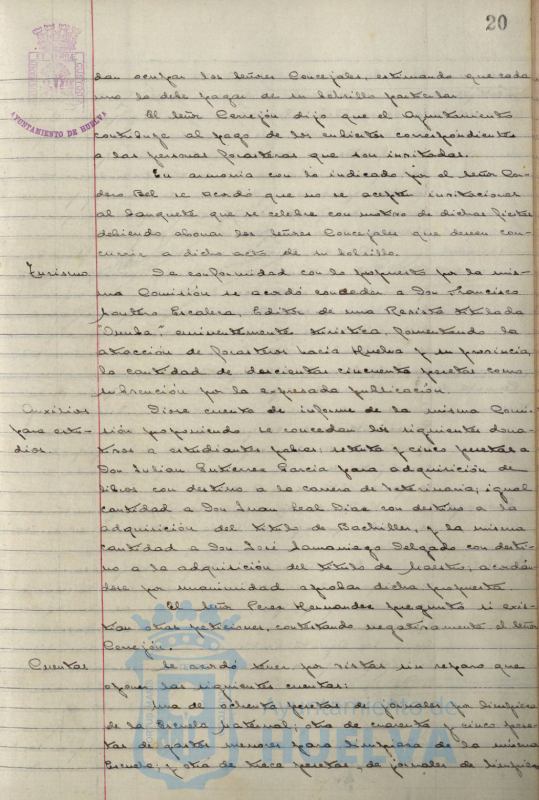 20
AYUNTAMIENTO DE HUELVA
dan ocupar los señores Concejales, estimando que cada
uno lo debe pagar de su bolsillo particular.
El señor Cerrejón dijo que el Ayuntamiento
contribuya al pago de los cubiertos correspondientes
a las personas forasteras que son invitadas.
En armonía con lo indicado por el señor Cor-
dero Bel se acordó que no se acepten invitaciones
al banquete que se celebre con motivo de dichas fiestas
debiendo abonar los señores Concejales que deseen con-
currir a dicho acto de su bolsillo.
Turismo. De conformidad con lo propuesto por la mis-
ma Comisión se acordó conceder a Don Francisco
Montero Escalera, Editor de una Revista titulada
"Onuba", eminentemente turistica, fomentando la
atracción de forasteros hacia Huelva y su provincia,
la cantidad de doscientas cincuenta pesetas como
subvención por la expresada publicación.
Auxilios Diose cuenta de informe de la misma Comi-
para estu- sión proponiendo se concedan los siguientes dona-
dios. tivos a estudiantes pobres: setenta y cinco pesetas a
Don Julian Gutierrez Garcia para adquisición de
libros con destino a la carrera de Veterinaria; igual
cantidad a Don Juan Leal Diaz con destino a la
adquisición del titulo de Bachiller, y la misma
cantidad a Don José Samaniego Delgado con desti-
no a la adquisición del titulo de Maestro; acordán-
dose por unanimidad aprobar dicha propuesta.
El señor Perez Hernandez preguntó si exis-
tian otras peticiones, contestando negativamente el señor
Cerrejón.
Cuentas Se acordó tener por vistas sin reparo que
oponer las siguientes cuentas:
Una de ochenta pesetas de jornales por limpieza
de la Escuela Maternal; otra de cuarenta y cinco pese-
tas de gastos menores para limpieza de la misma
Escuela; y otra de trece pesetas, de jornales de limpieza
Ayuntamiento de
HUELVA